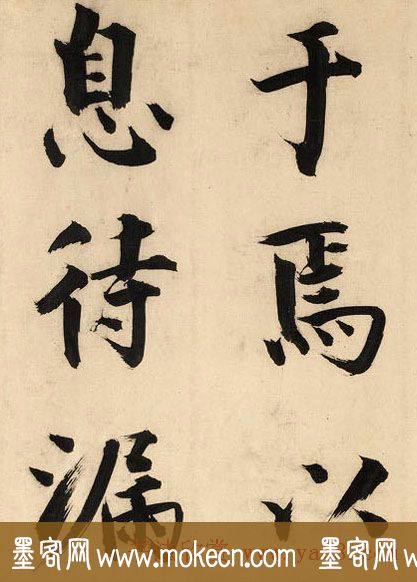 于焉以
息待漏
墨客网 www.mokecn.com 墨客网